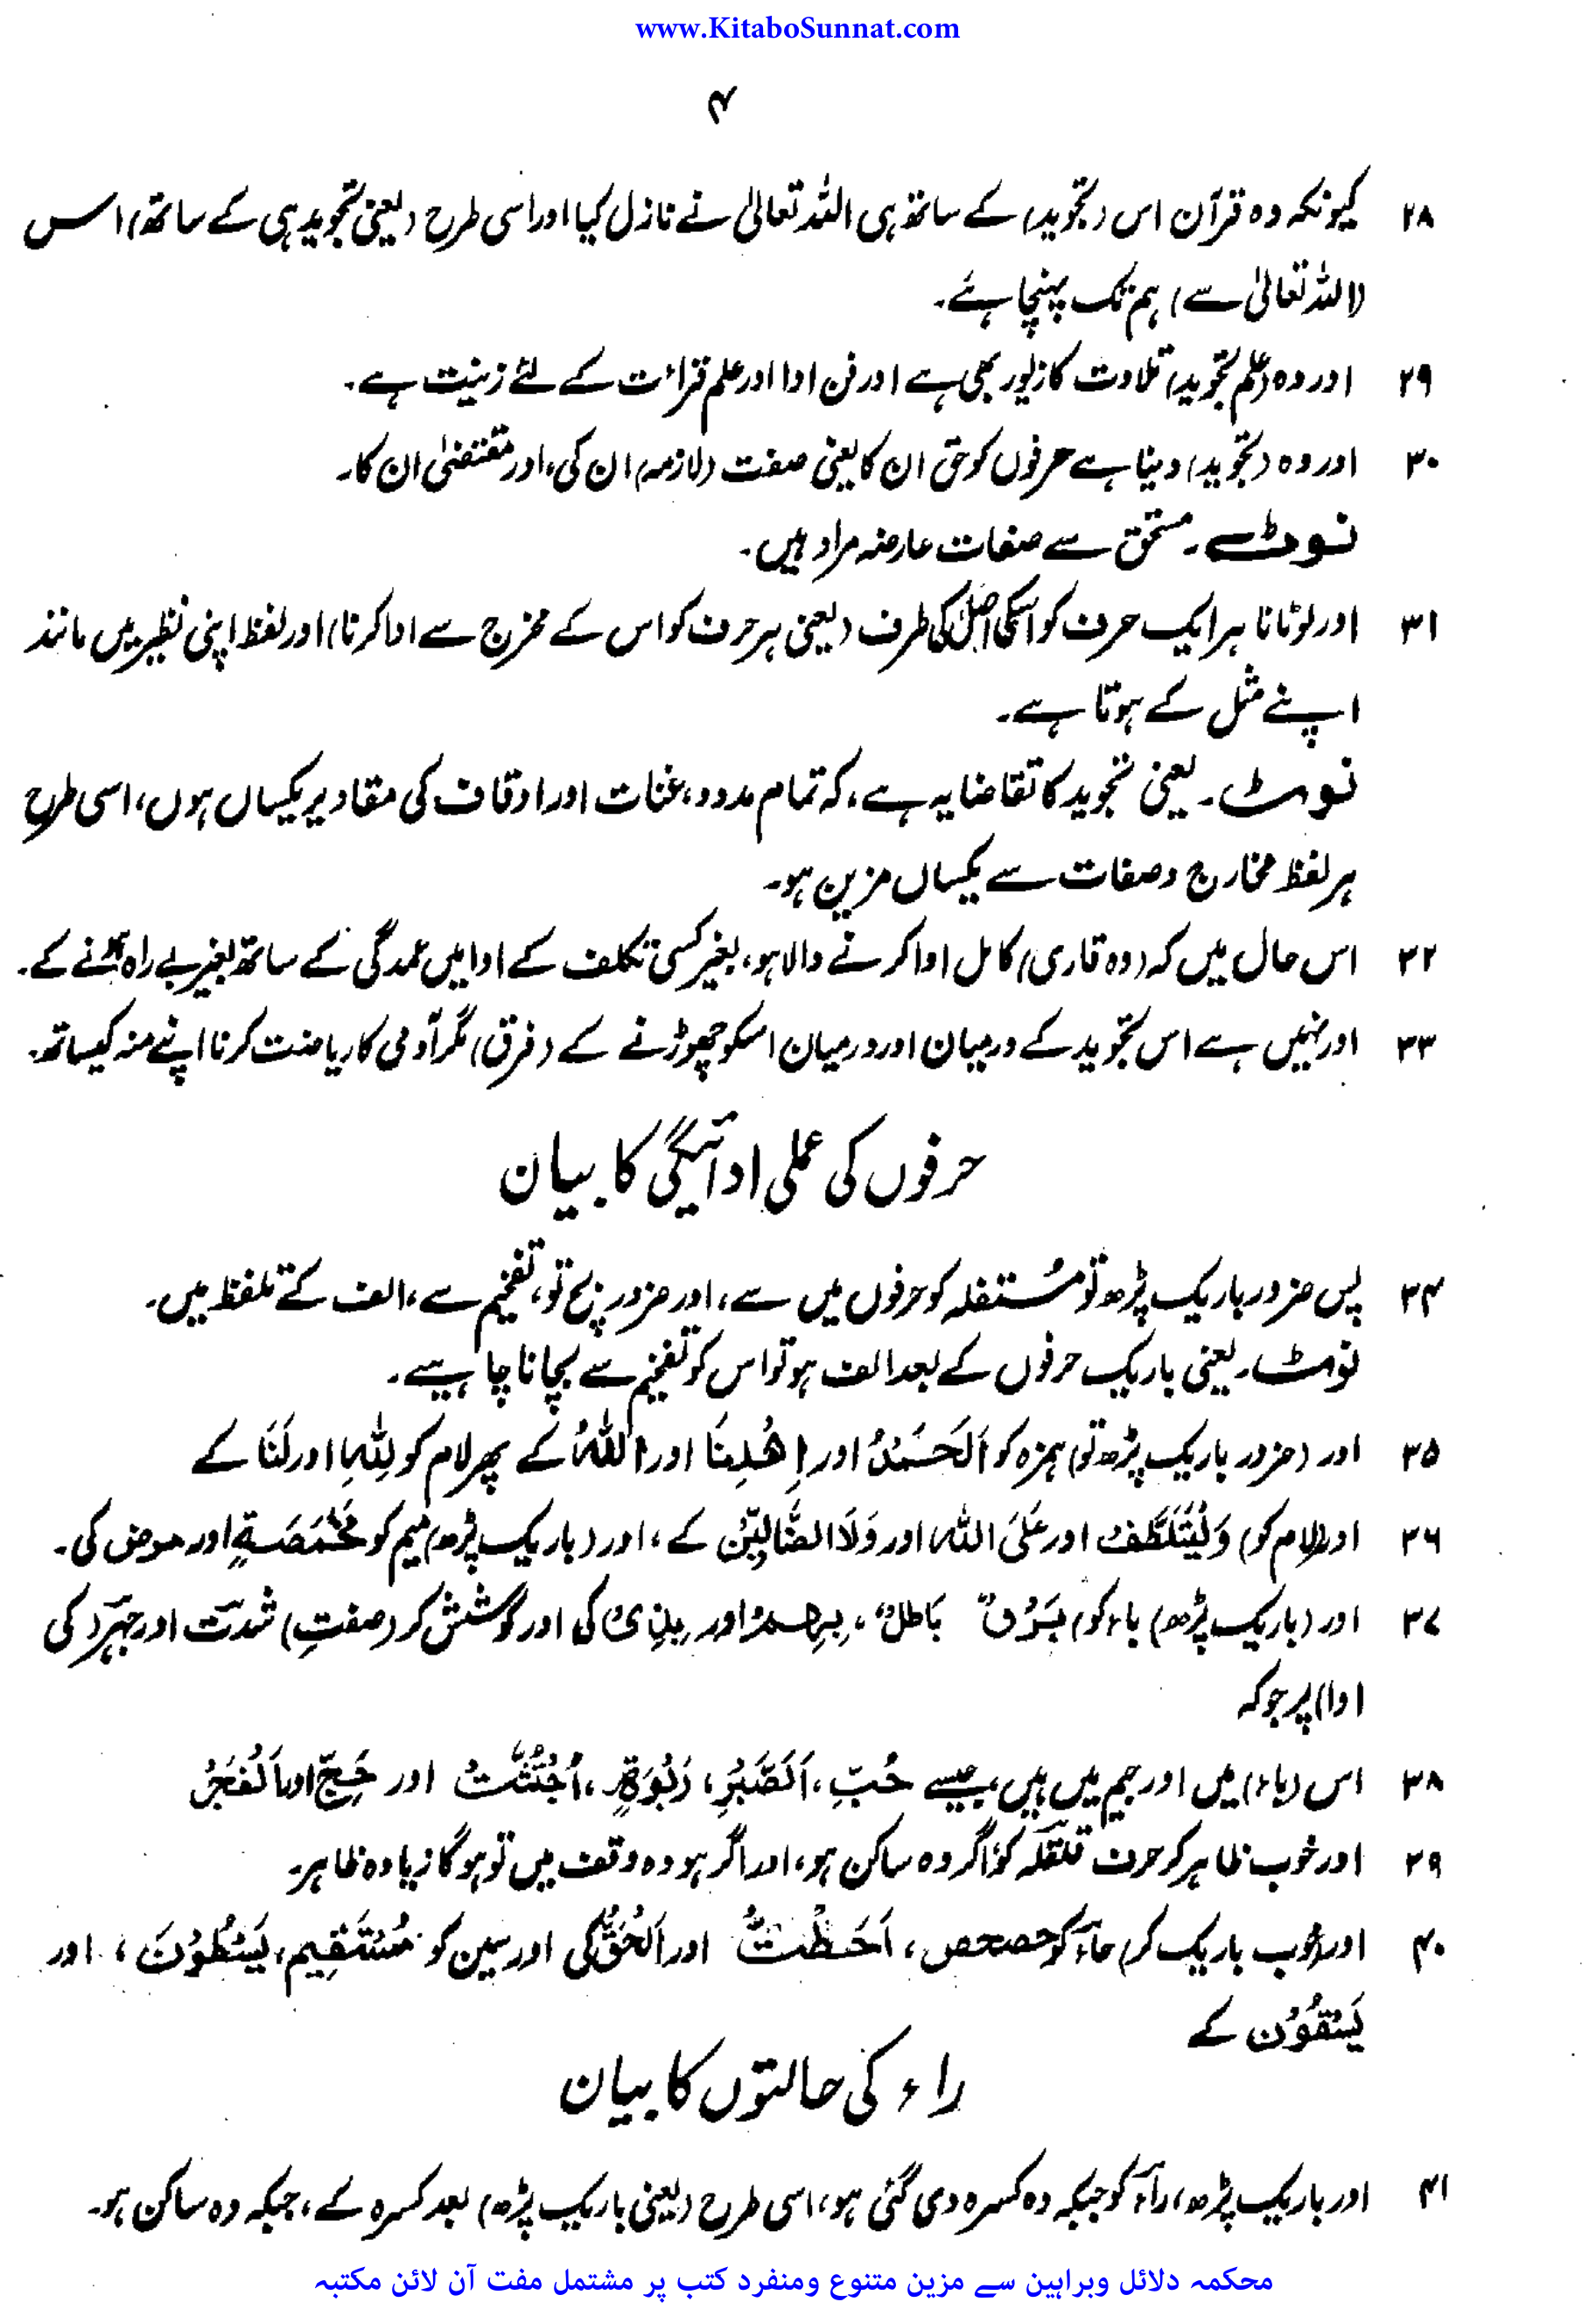 www.KitaboSunnat.com
۴
۲۸ کیونکہ وہ قرآن اس (تجوید) کے ساتھ ہی اللہ تعالیٰ نے نازل کیا اور اسی طرح (یعنی تجوید ہی کے ساتھ) اس
(اللہ تعالیٰ سے) ہم تک پہنچا ہے۔
۲۹ اور وہ (علم تجوید) تلاوت کا زیور بھی ہے اور فن ادا اور علم قراءت کے لئے زینت ہے۔
۳۰ اور وہ (تجوید) دینا ہے حرفوں کو حق ان کا یعنی صفت (لازمہ) ان کی، اور مقتضیٰ ان کا۔
نوٹ۔ مستحق سے صفات عارضہ مراد ہیں۔
۳۱ اور لوٹانا ہر ایک حرف کو اسکی اصل کی طرف (یعنی ہر حرف کو اس کے مخرج سے ادا کرنا) اور لفظ اپنی نظیر میں مانند
اپنے مثل کے ہوتا ہے۔
نوٹ۔ یعنی تجوید کا تقاضا یہ ہے، کہ تمام مدود، غنات اور اوقاف کی مقادیر یکساں ہوں، اسی طرح
ہر لفظ مخارج و صفات سے یکساں مزین ہو۔
۳۲ اس حال میں کہ (وہ قاری) کامل ادا کرنے والا ہو، بغیر کسی تکلف کے ادا میں عمدگی کے ساتھ بغیر بے راہ ہٹنے کے۔
۳۳ اور نہیں ہے اس تجوید کے درمیان اور درمیان اسکو چھوڑنے کے (فرق) مگر آدمی کا ریاضت کرنا اپنے منہ کیساتھ۔
حرفوں کی عملی ادائیگی کا بیان
۳۴ پس ضرور باریک پڑھ تو مُستفلہ کو حرفوں میں سے، اور ضرور بچ تو، تفخیم سے، الف کے تلفظ میں۔
نوٹ۔ یعنی باریک حرفوں کے بعد الف ہو تو اس کو تفخیم سے بچانا چاہیے۔
۳۵ اور (ضرور باریک پڑھ تو) ہمزہ کو اَلْحَمْدُ اور اِهْدِنَا اور اَللّٰهُ کے پھر لام کو لِلّٰهِ اور لَنَا کے
۳۶ اور (لام کو) وَلْيَتَلَطَّفْ اور عَلَى اللّٰه اور وَلَا الضَّالِّيْن کے، اور (باریک پڑھ) میم کو مَخْمَصَةٍ اور مرض کی۔
۳۷ اور (باریک پڑھ) باء کو) بَرْقٌ بَاطِلٌ، بِهِمْ اور بِذِىْ کی اور کوشش کر (صفتِ) شدت اور جہر (کی
ادا) پر جو کہ
۳۸ اس (باء) میں اور جیم میں ہیں، جیسے حُبِّ، اَلصَّبْرِ، رَبْوَةٍ، اُجْتُثَّتْ اور حَجِّ اور اَلْفَجْرِ
۳۹ اور خوب ظاہر کر حرف قلقلہ کو اگر وہ ساکن ہو، اور اگر ہو وہ وقف میں تو ہو گا زیادہ ظاہر۔
۴۰ اور (خوب باریک کر) حآء کو حصحص، اَحَطْتُّ اور اَلْحَقُّ کی اور سین کو مُسْتَقِيْم، يَسْطُوْنَ، اور
يَسْقُوْنَ کے
راء کی حالتوں کا بیان
۴۱ اور باریک پڑھ، رآء کو جبکہ وہ کسرہ دی گئی ہو، اسی طرح (یعنی باریک پڑھ) بعد کسرہ کے، جبکہ وہ ساکن ہو۔
محکمہ دلائل وبراہین سے مزین متنوع ومنفرد کتب پر مشتمل مفت آن لائن مکتبہ